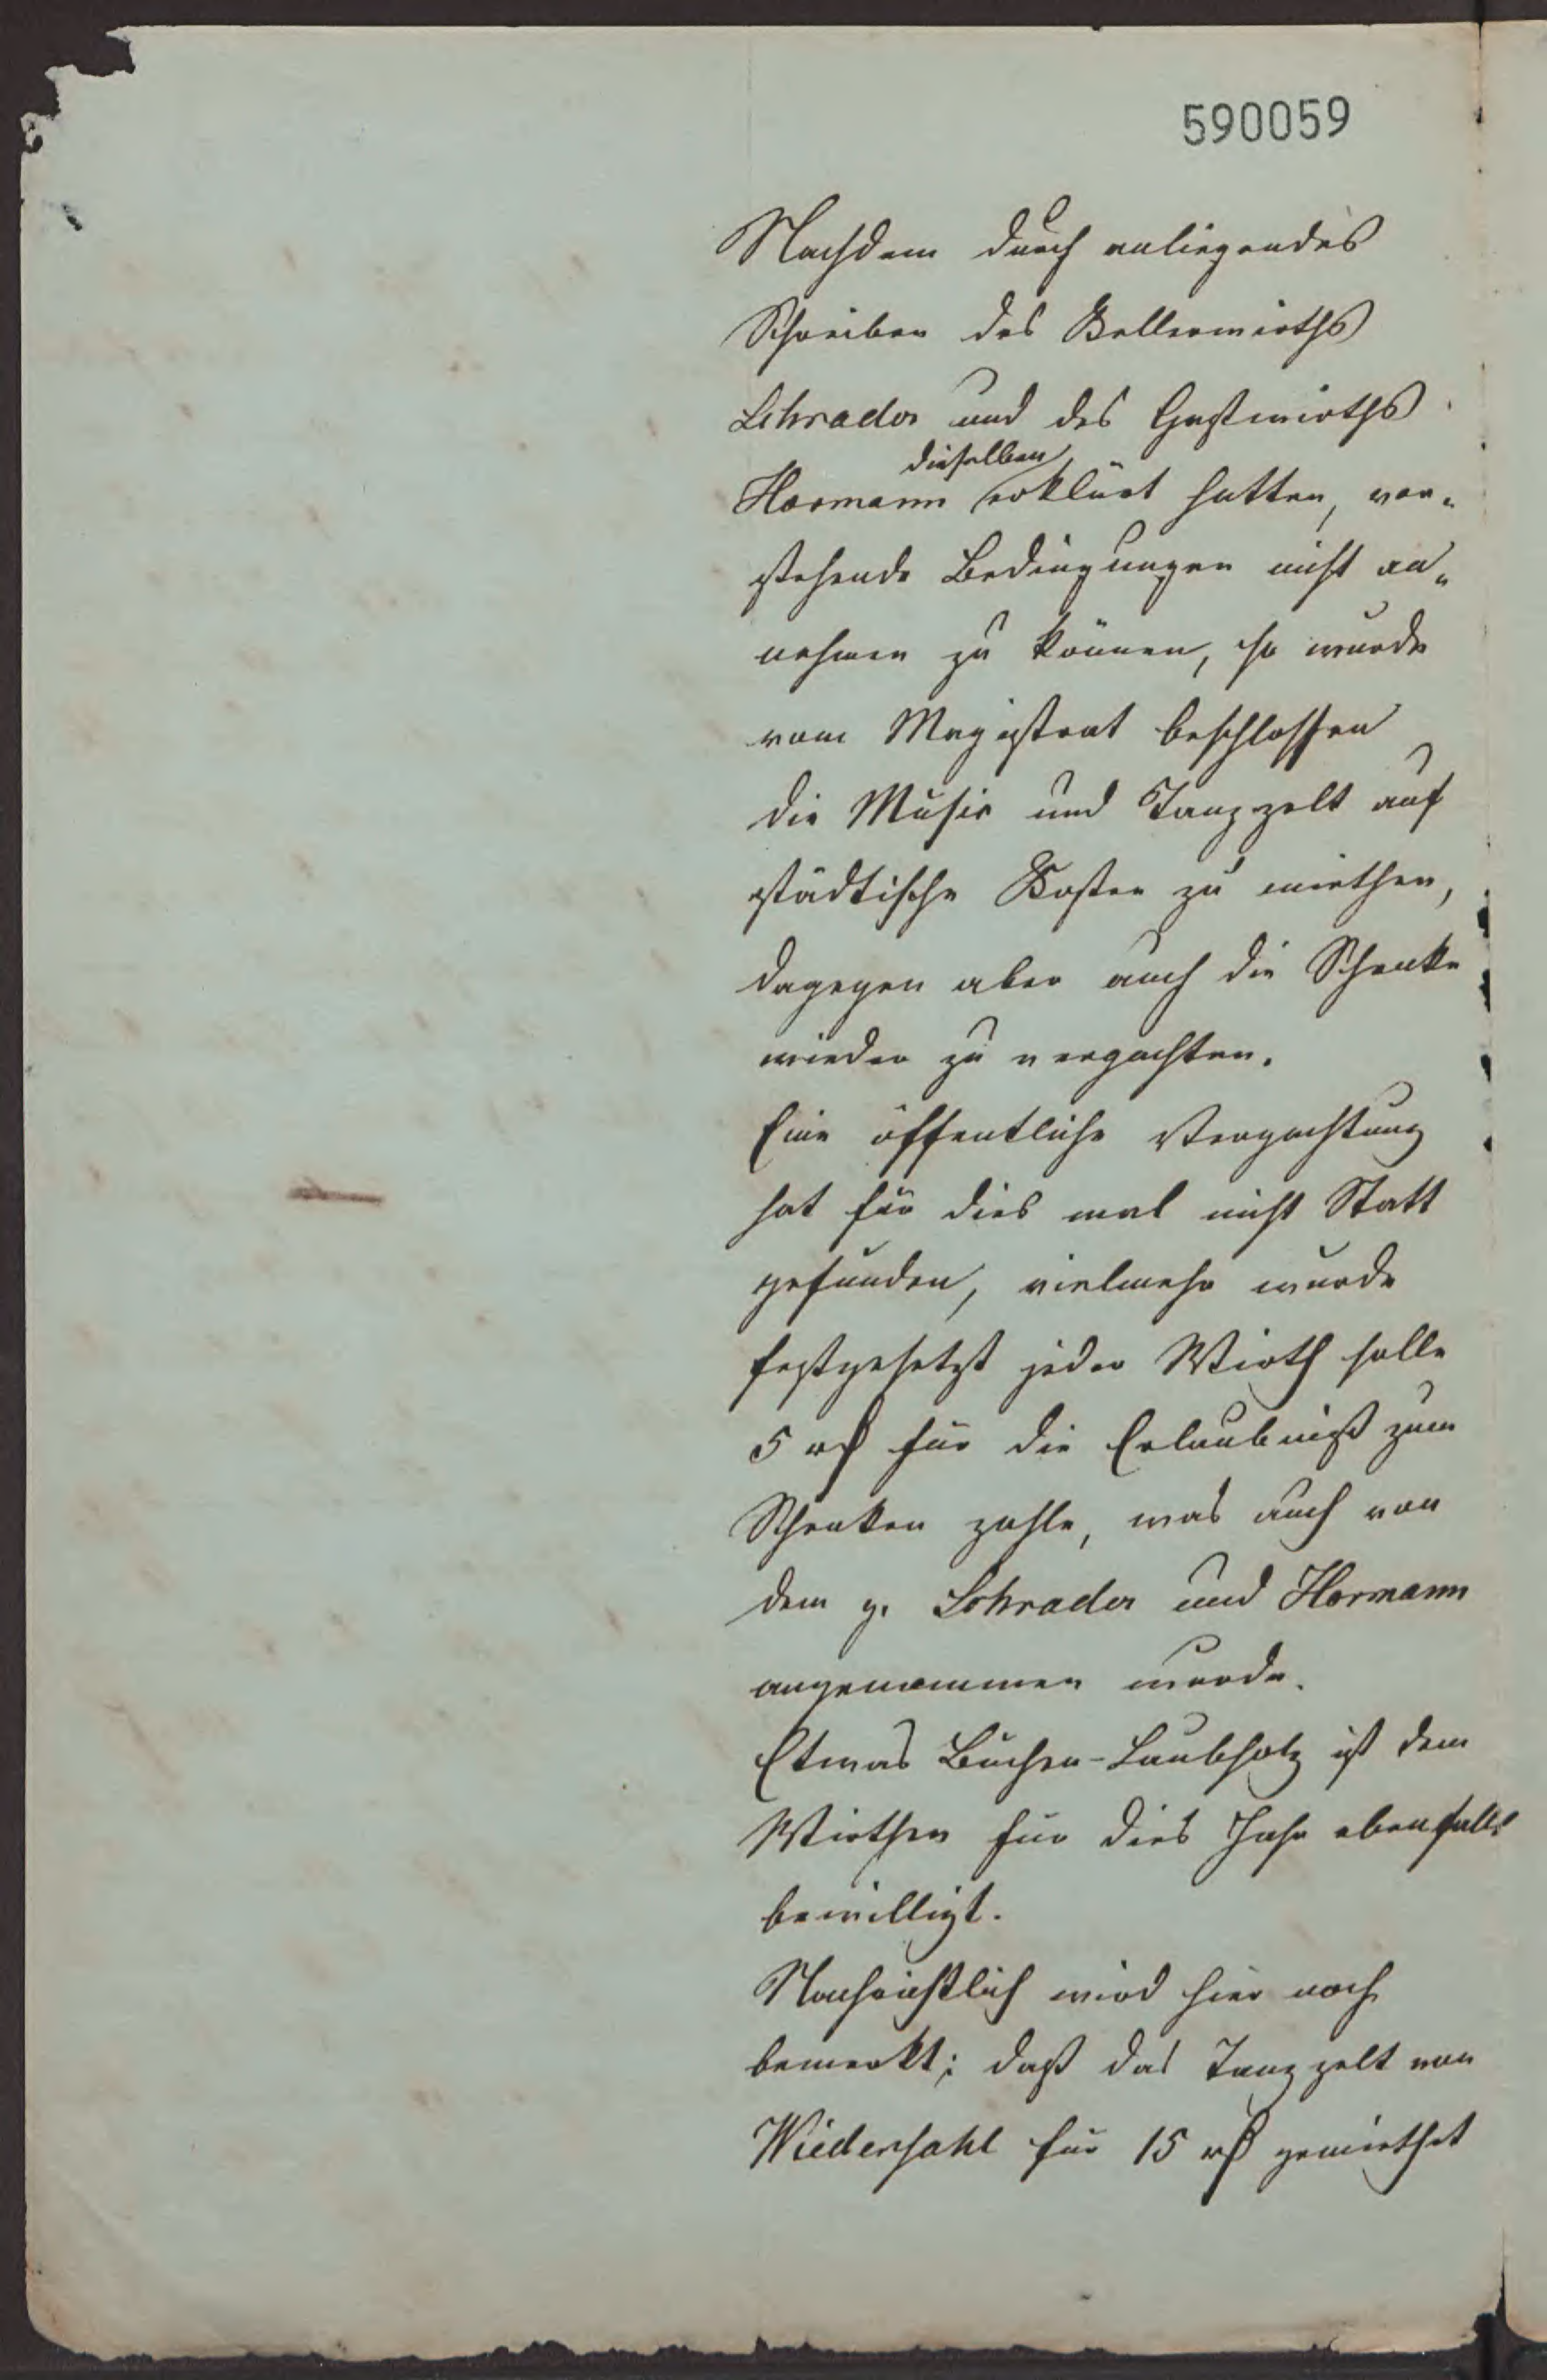 590059
Nachdem durch anliegendes
Schreiben des Kellerwirths
Schrader und des Gastwirths
dieselben
Hormann erklärt hatten, vor-
stehende Bedingungen nicht an-
nehmen zu können, so wurde
vom Magistrat beschlossen
die Musik und Tanzzelt auf
städtische Kosten zu miethen,
dagegen aber auch die Schenke
wieder zu verpachten.
Eine öffentliche Verpachtung
hat für dies mal nicht Statt
gefunden, vielmehr wurde
festgesetzt jeder Wirth solle
5 rß für die Erlaubniß zum
Schenken zahle, was auch von
dem p. Schrader und Hormann
angenommen wurde.
Etwas Buchen-Laubholz ist dem
Wirthen für dies Jahr ebenfalls
bewilligt.
Nachrichtlich wird hier noch
bemerkt; daß das Tanzzelt von
Wiedensahl für 15 rß gemiethet